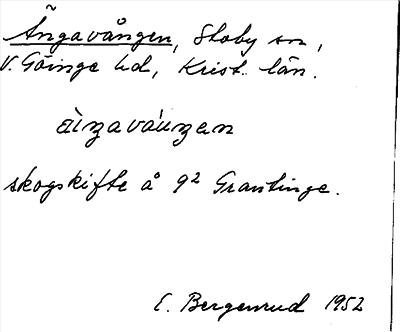 Ängavången, Stoby sn,
V. Göinge hd, Krist. län.
äŋavåŋen
skogskifte å 9² Grantinge.
E. Bergenrud 1952